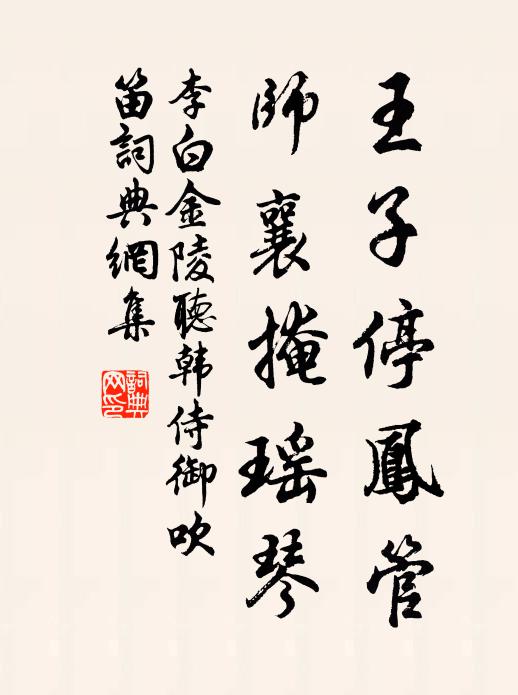 王子停鳳管
師襄掩瑶琴
李白金陵聽韩侍御吹
笛詞典網集
詞典
网印